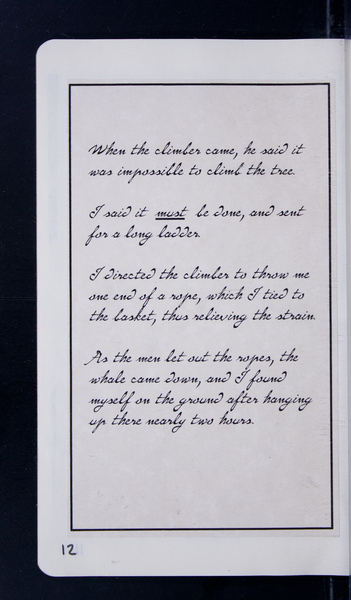 When the climber came, he said it
was impossible to climb the tree.
I said it must be done, and sent
for a long ladder.
I directed the climber to throw me
one end of a rope, which I tied to
the basket, thus relieving the strain.
As the men let out the ropes, the
whale came down, and I found
myself on the ground after hanging
up there nearly two hours.
12